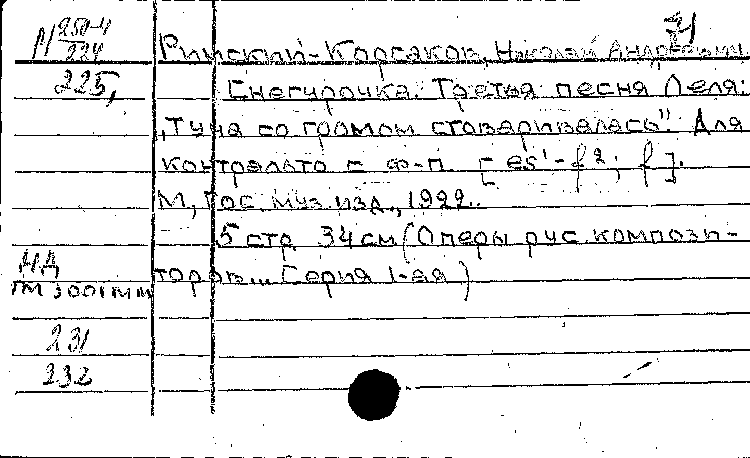 М 250-4
224
225,
Римский-Корсаков, Николай Андреевич.
Снегурочка. Третья песня Леля:
„Туча со громом сговаривалась". Для
контральто с ф-п. [es¹-f²; f].
М, Гос. муз. изд., 1922.
5 стр 34 см (Оперы рус. компози-
торов... Серия 1-ая)
НД
231
232